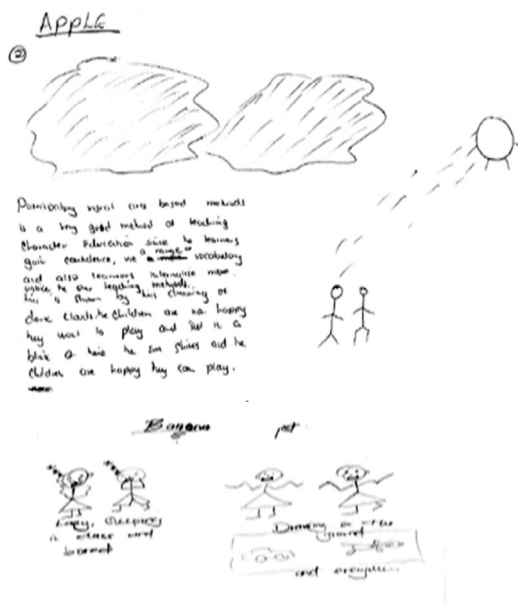 APPLE
2
Participatory visual arts based methods
is a very good method of teaching
character Education since he learners
gain confidence, use a range of vocabulary
and also learners internalise more
unlike he our teaching methods.
this is shown by this drawing of
dark clouds. he children are not happy
hey want to play and in a
blink of he sun shines and he
children are happy hey can play.
Banana pet
Lazy, sleeping
in class and
bored
Drawing on the
ground
and